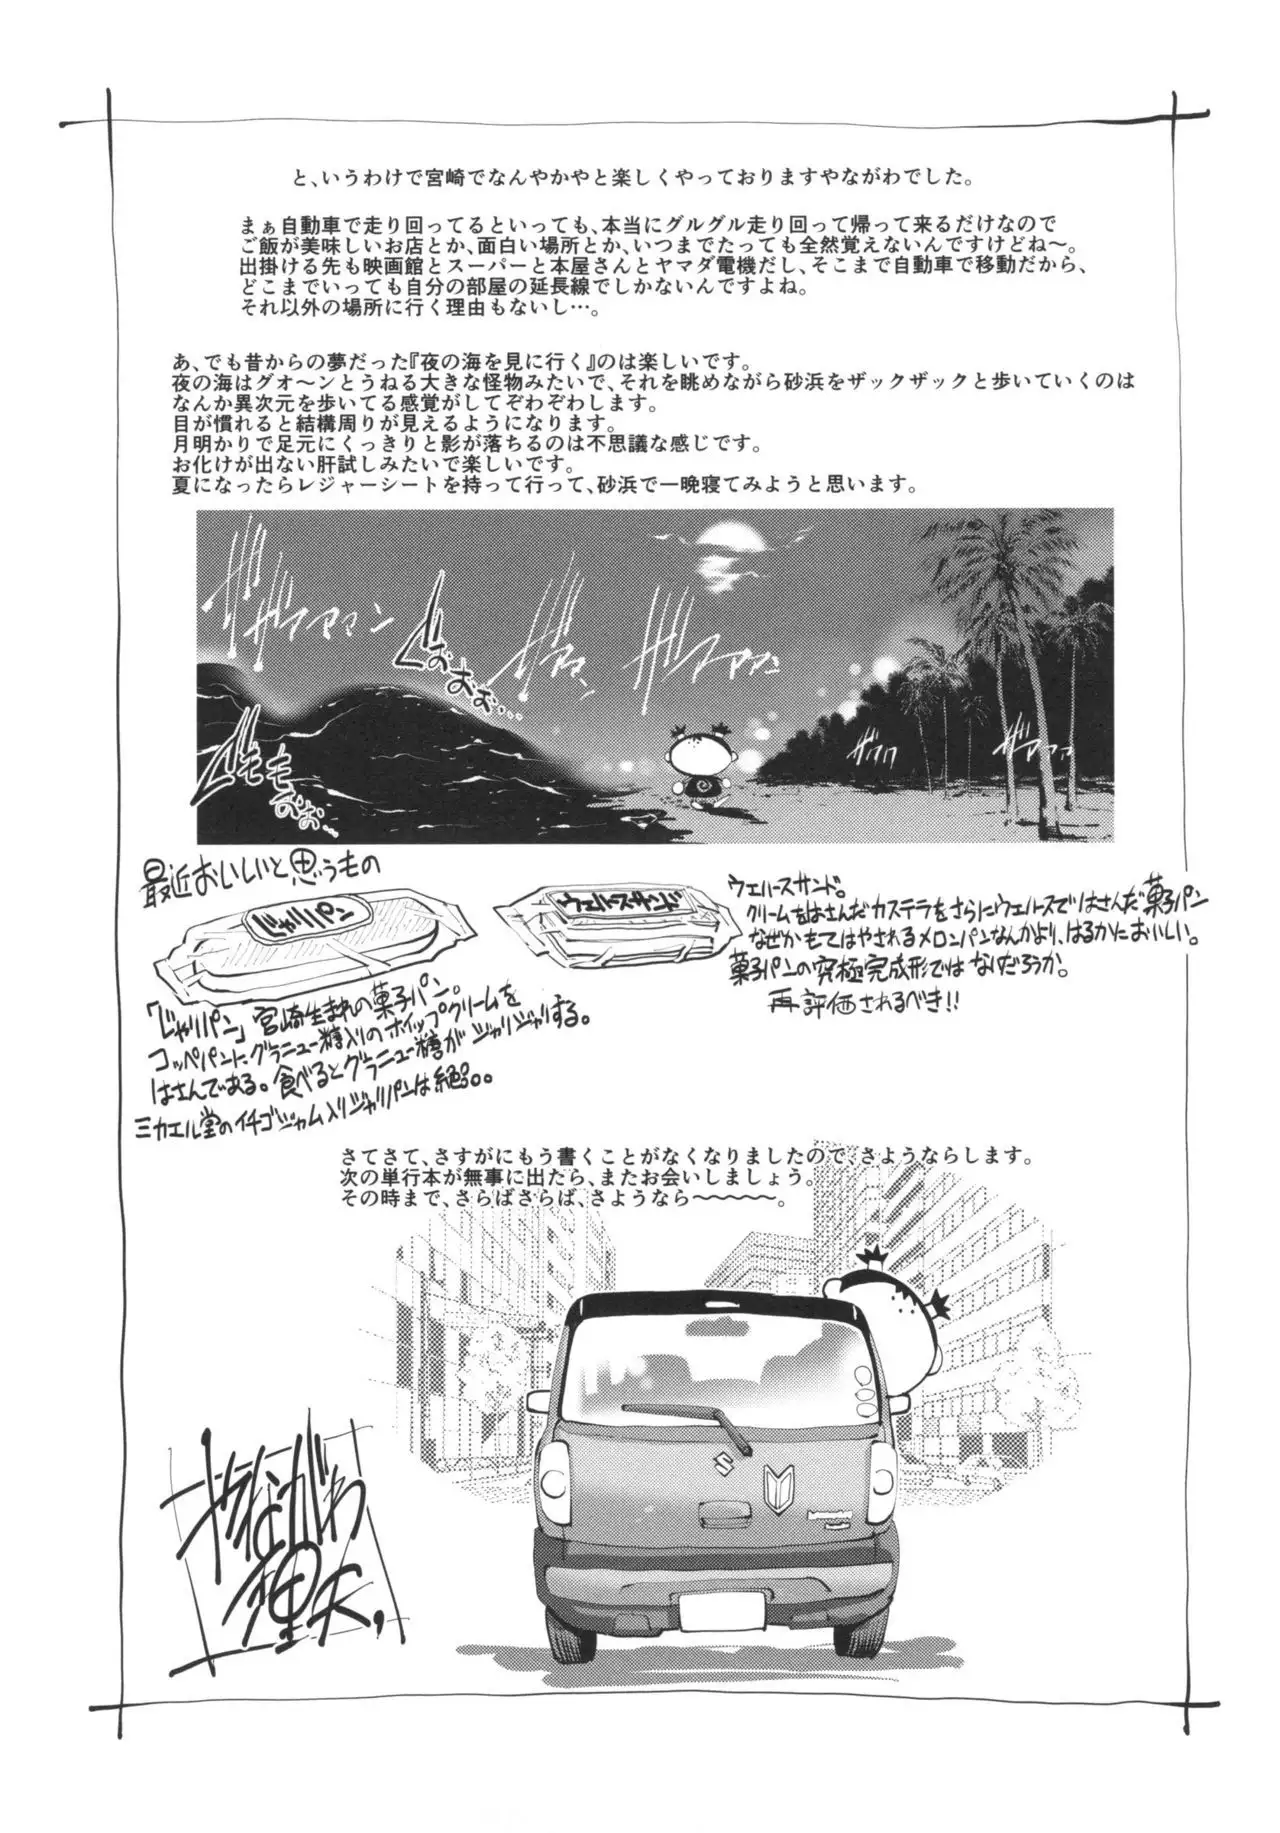 と、いうわけで宮崎でなんやかやと楽しくやっておりますやながわでした。
まぁ自動車で走り回ってるといっても、本当にグルグル走り回って帰って来るだけなので
ご飯が美味しいお店とか、面白い場所とか、いつまでたっても全然覚えないんですけどね〜。
出掛ける先も映画館とスーパーと本屋さんとヤマダ電機だし、そこまで自動車で移動だから、
どこまでいっても自分の部屋の延長線でしかないんですよね。
それ以外の場所に行く理由もないし…。
あ、でも昔からの夢だった『夜の海を見に行く』のは楽しいです。
夜の海はグオ〜ンとうねる大きな怪物みたいで、それを眺めながら砂浜をザックザックと歩いていくのは
なんか異次元を歩いてる感覚がしてぞわぞわします。
目が慣れると結構周りが見えるようになります。
月明かりで足元にくっきりと影が落ちるのは不思議な感じです。
お化けが出ない肝試しみたいで楽しいです。
夏になったらレジャーシートを持って行って、砂浜で一晩寝てみようと思います。
最近おいしいと思うもの
じゃりパン
ウエハースサンド
ウエハースサンド。
クリームをはさんだカステラをさらにウエハースではさんだ菓子パン
なぜかもてはやされるメロンパンなんかより、はるかにおいしい。
菓子パンの究極完成形ではないだろうか。
再評価されるべき!!
「じゃりパン」宮崎生まれの菓子パン。
コッペパンにグラニュー糖入りのホイップクリームを
はさんである。食べるとグラニュー糖がジャリジャリする。
ミカエル堂のイチゴジャム入りジャリパンは絶品。
さてさて、さすがにもう書くことがなくなりましたので、さようならします。
次の単行本が無事に出たら、またお会いしましょう。
その時まで、さらばさらば、さようなら〜〜〜〜。
やながわ
理央